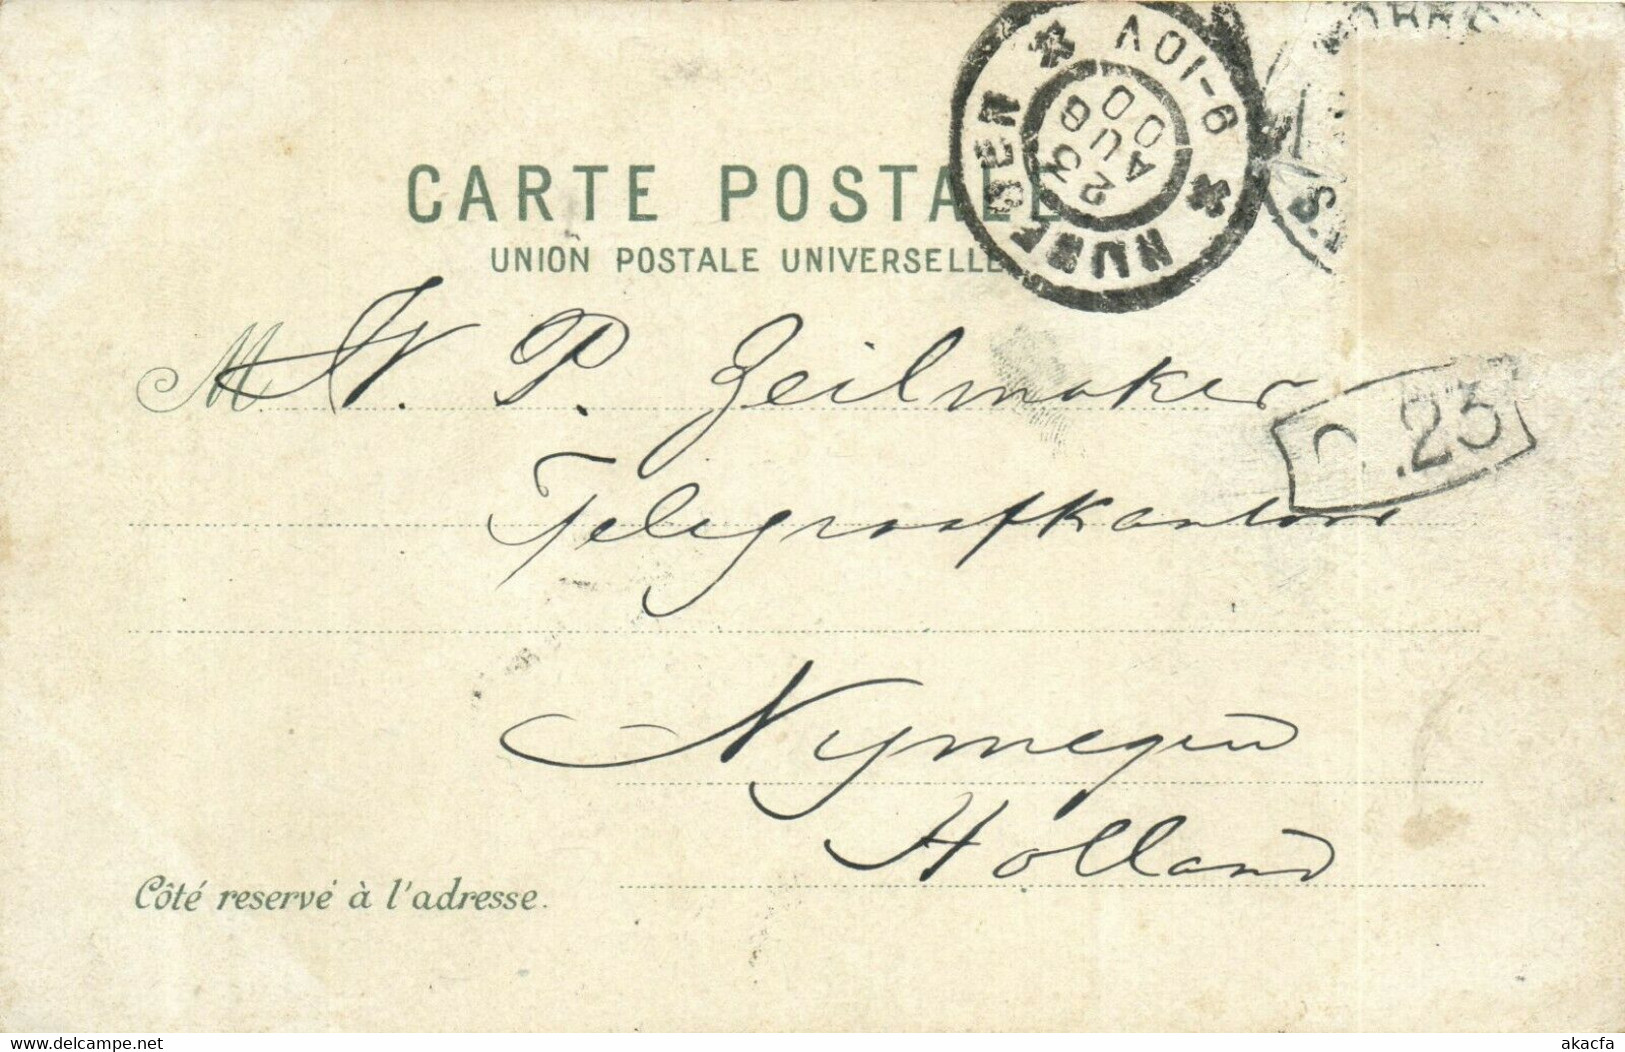 CARTE POSTALE
UNION POSTALE UNIVERSELLE
NIJMEGEN
9-10V
23
AUG
00
M W. P. Zeilmaker
.23
Telegraafkantoor
Nymegen
Holland
Côté reservé à l'adresse.
www.delcampe.net
akacfa